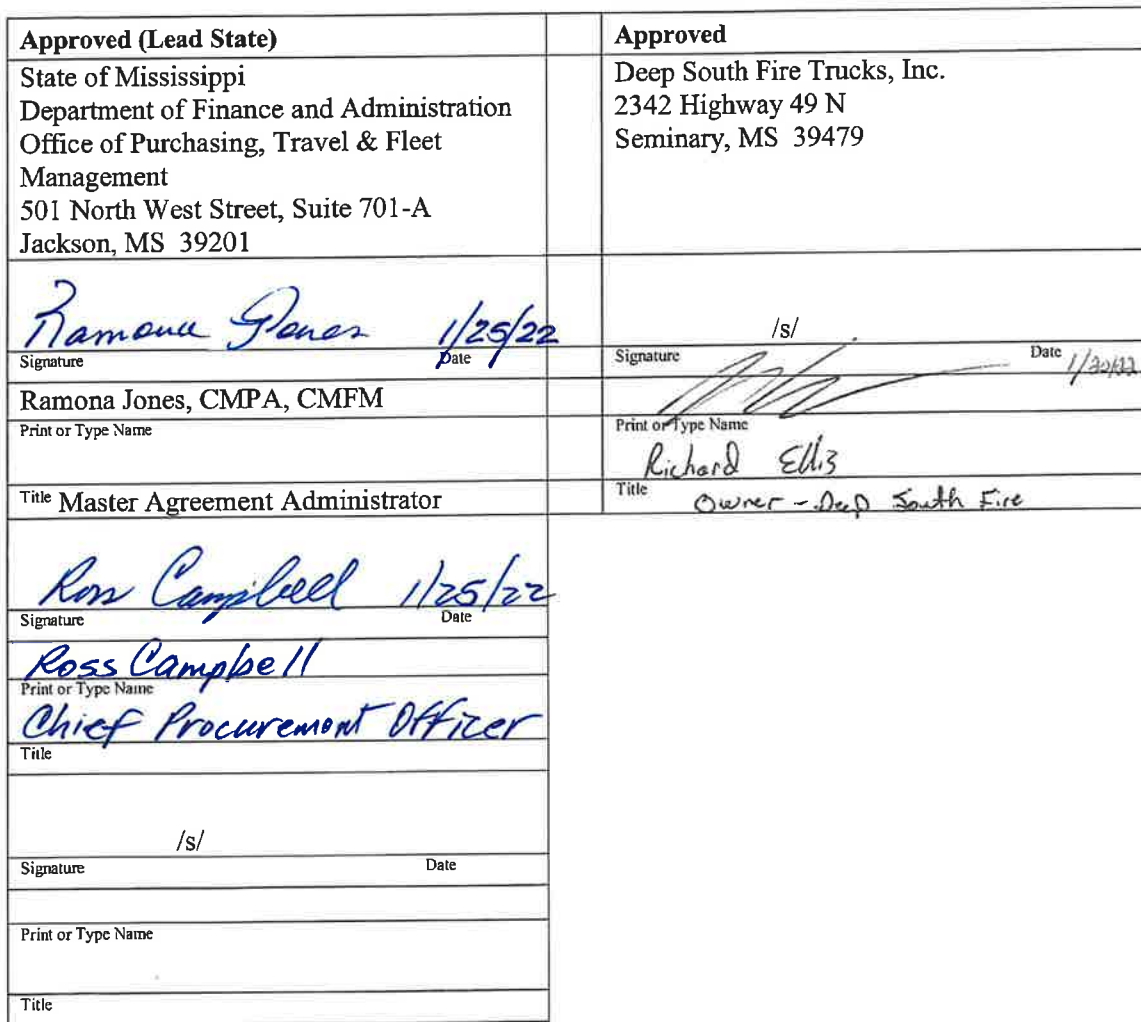 Approved (Lead State)
State of Mississippi
Department of Finance and Administration
Office of Purchasing, Travel & Fleet
Management
501 North West Street, Suite 701-A
Jackson, MS 39201
Ramona Jones 1/25/22
Signature Date
Ramona Jones, CMPA, CMFM
Print or Type Name
Title Master Agreement Administrator
Ross Campbell 1/25/22
Signature Date
Ross Campbell
Print or Type Name
Chief Procurement Officer
Title
/s/
Signature Date
Print or Type Name
Title
Approved
Deep South Fire Trucks, Inc.
2342 Highway 49 N
Seminary, MS 39479
/s/
Signature Date
Print or Type Name
Richard Ellis
Title Owner - Deep South Fire